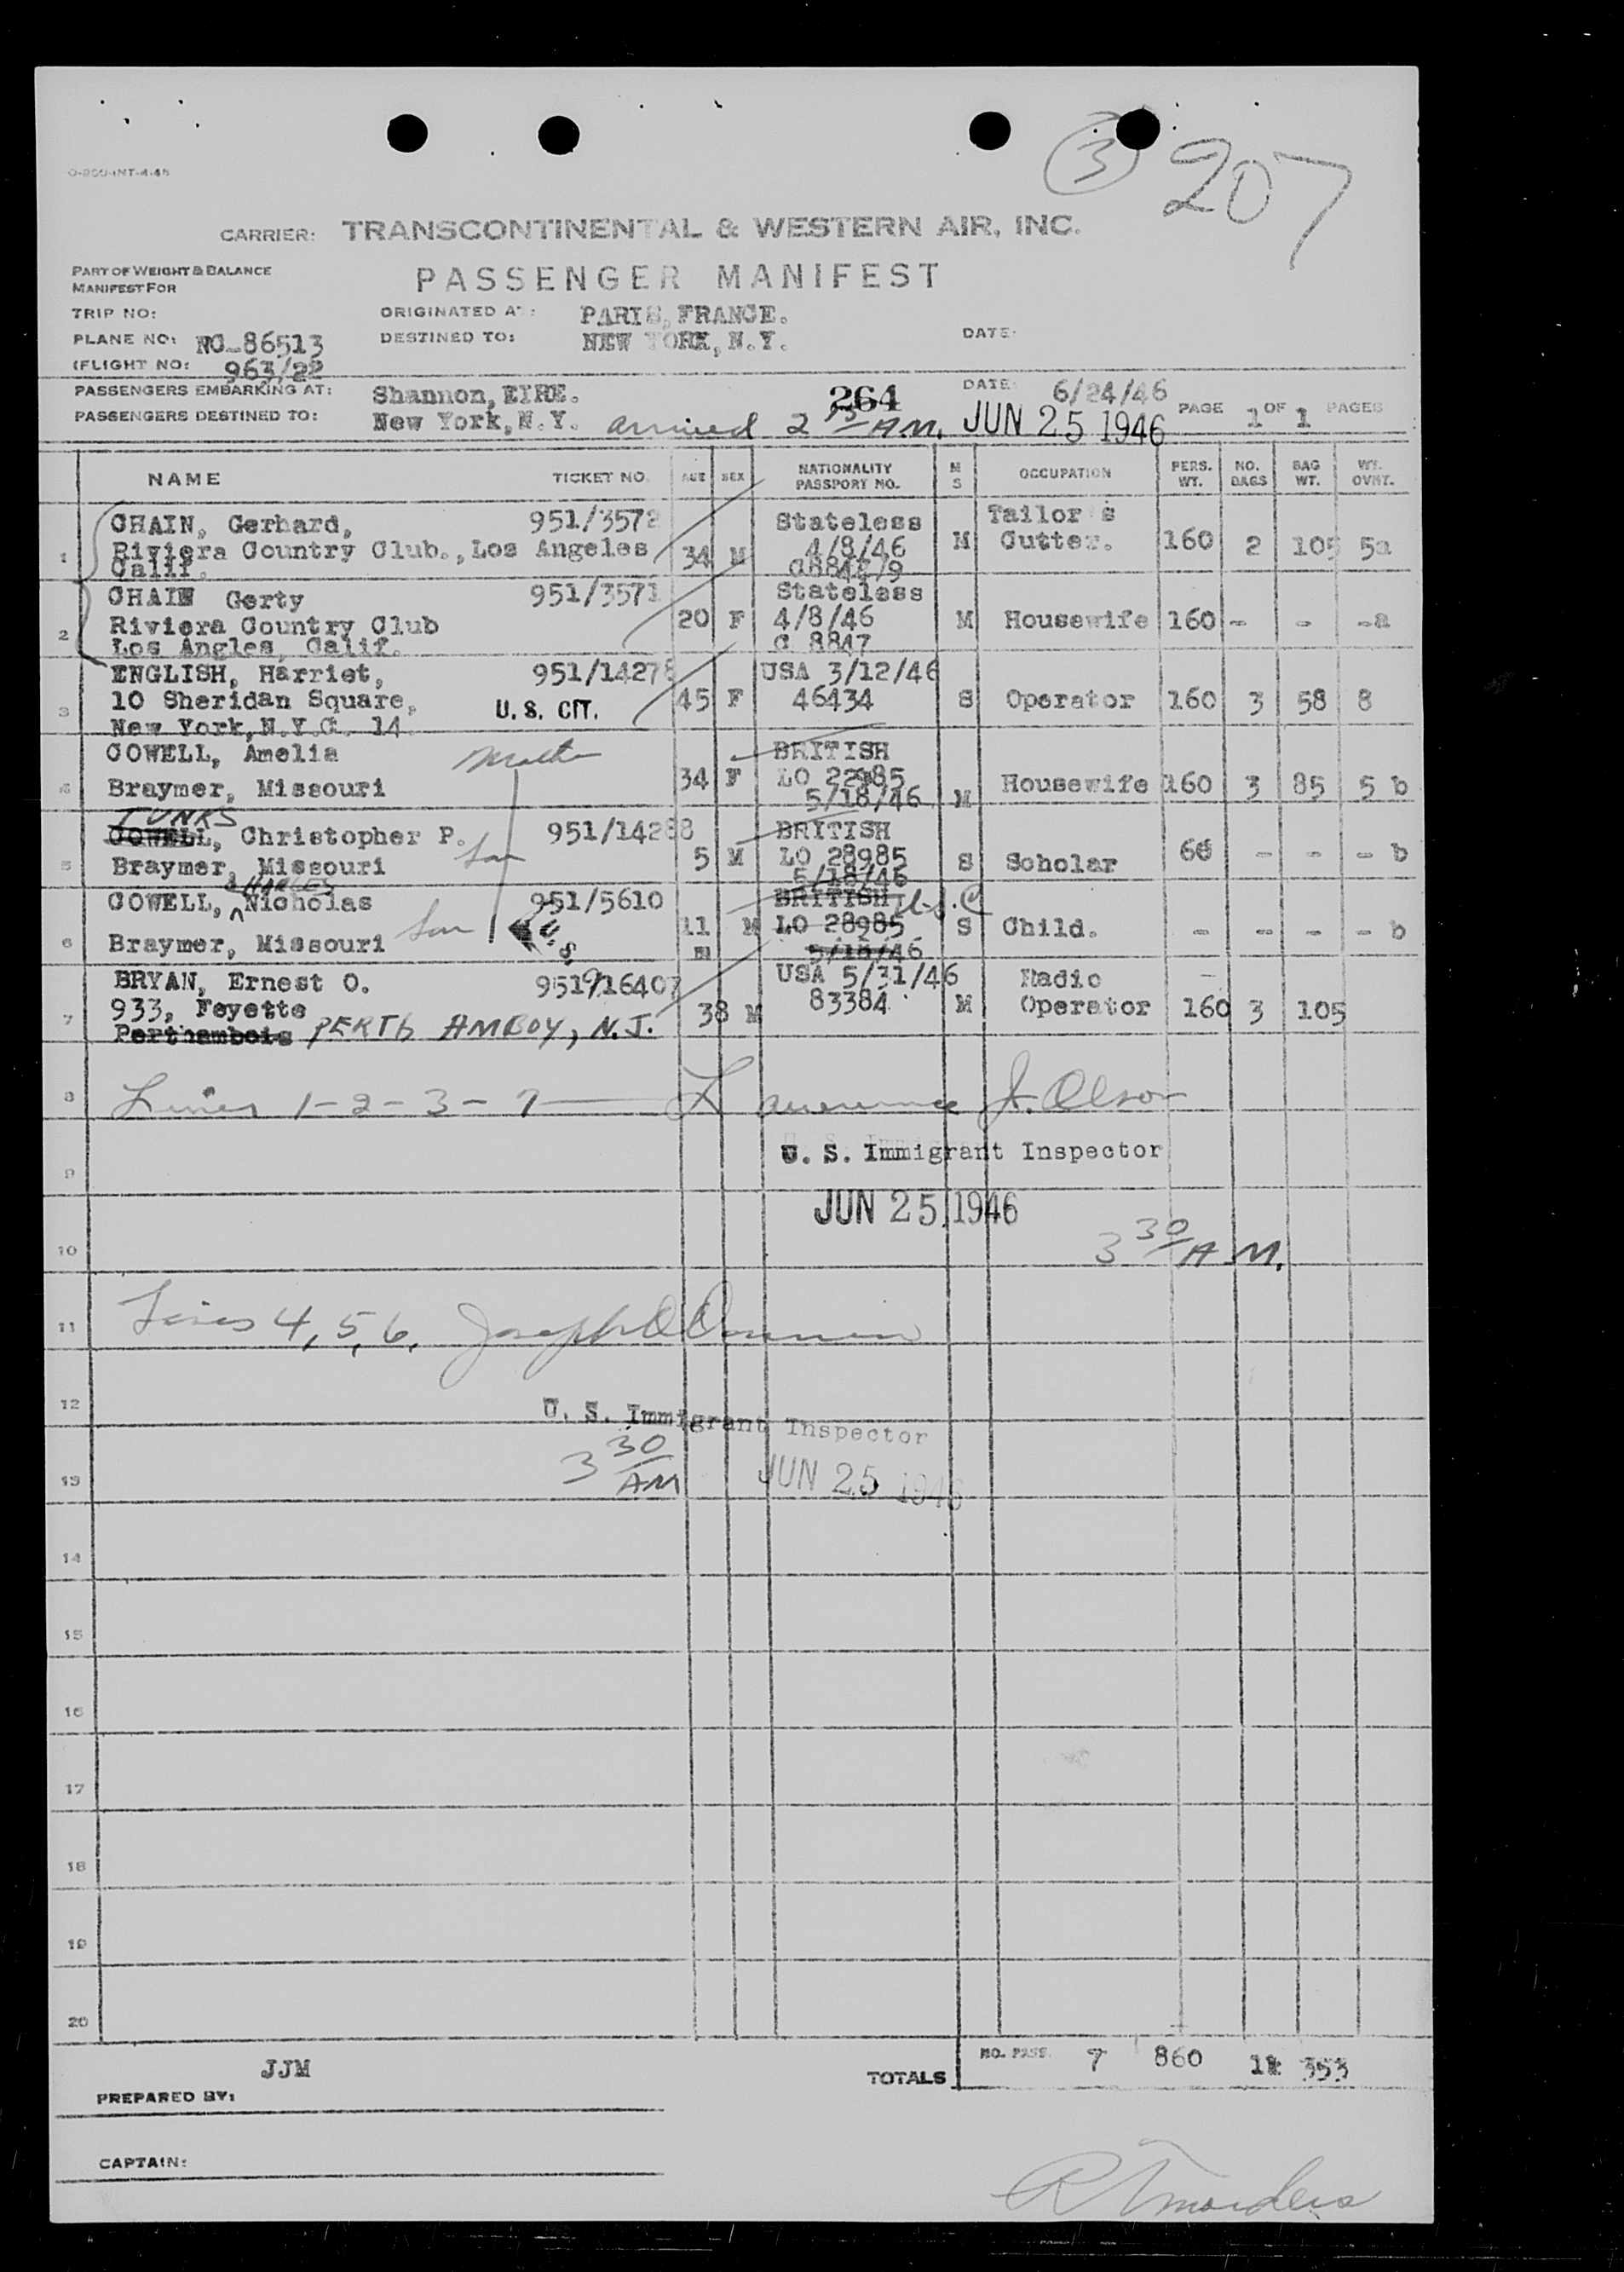 O-200-INT-4-45
3 207
CARRIER: TRANSCONTINENTAL & WESTERN AIR, INC.
PART OF WEIGHT & BALANCE
MANIFEST FOR
PASSENGER MANIFEST
TRIP NO: ORIGINATED AT: PARIS, FRANCE.
PLANE NO: NC-86513 DESTINED TO: NEW YORK, N.Y. DATE:
(FLIGHT NO: 963/22
PASSENGERS EMBARKING AT: Shannon, EIRE. 264 DATE 6/24/46
PASSENGERS DESTINED TO: New York, N.Y. arrived 2 15 AM. JUN 25 1946 PAGE 1 OF 1 PAGES
NAME TICKET NO. AGE SEX NATIONALITY PASSPORT NO. M S OCCUPATION PERS. WT. NO. BAGS BAG WT. WT. OVHT.
CHAIN, Gerhard, 951/3572 Stateless Tailor's
1 Riviera Country Club., Los Angeles 34 M 4/8/46 M Cutter. 160 2 105 5a
Calif.
CHAIN Gerty 951/3571 Stateless
2 Riviera Country Club 20 F 4/8/46 M Housewife 160 - - -a
Los Angles, Calif. C 8847
ENGLISH, Harriet, 951/14278 USA 3/12/46
3 10 Sheridan Square, U. S. CIT. 45 F 46434 S Operator 160 3 58 8
New York, N.Y.C. 14
COWELL, Amelia Mother BRITISH
4 Braymer, Missouri 34 F LO 22985 M Housewife 160 3 85 5 b
5/18/46
TUNKS
COWELL, Christopher P. 951/14288 BRITISH
5 Braymer, Missouri Son 5 M LO 28985 S Scholar 60 - - - b
5/18/46
CHARLES
COWELL, Nicholas 951/5610 BRITISH U.S.C
6 Braymer, Missouri Son U.S. 11 m M LO 28985 S Child. - - - - b
5/18/46
BRYAN, Ernest O. 951/16407 USA 5/31/46 Radio -
7 933, Feyette 38 M 83384 M Operator 160 3 105
Perthambois PERTH AMBOY, N.J.
8 Lines 1-2-3-7 Lawrence J. Olson
9 U. S. Immigrant Inspector
JUN 25 1946
10 3 30 A M.
11 Lines 4, 5, 6, Joseph
12 U. S. Immigrant Inspector
13 3 30 AM JUN 25 1946
14
15
16
17
18
19
20
JJM TOTALS NO. PASS. 7 860 353
PREPARED BY:
CAPTAIN: